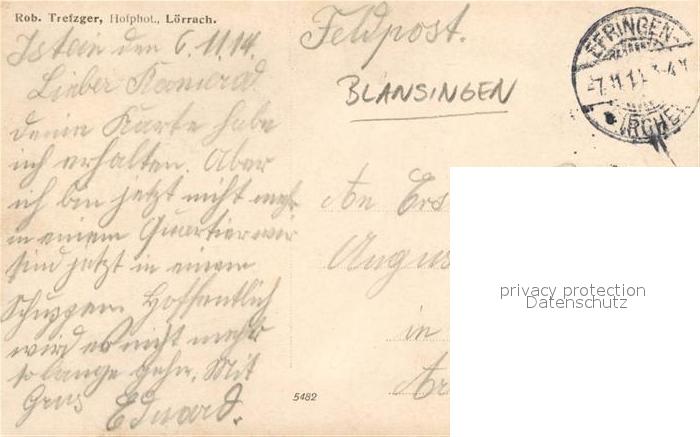 Rob. Trefzger, Hofphot., Lörrach.
Istein den 6.11.14.
Lieber Kamerad
deine Karte habe
ich erhalten. Aber
ich bin jetzt nicht mehr
in einem Quartier wir
sind jetzt in einem
Schuppen. Hoffentlich
wird es nicht mehr
so lange gehn. Mit
Grus Eduard.
Feldpost.
BLANSINGEN
EFRINGEN-
7.11.14
KIRCHEN
An Ers
Augus
in
Ar
5482
privacy protection
Datenschutz